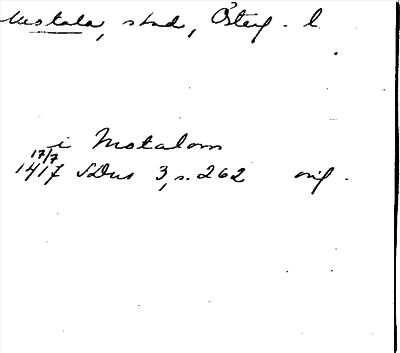 Motala, stad, Österg. l.
i Motalom
17/7
1417 SDns 3, s. 262 orig.